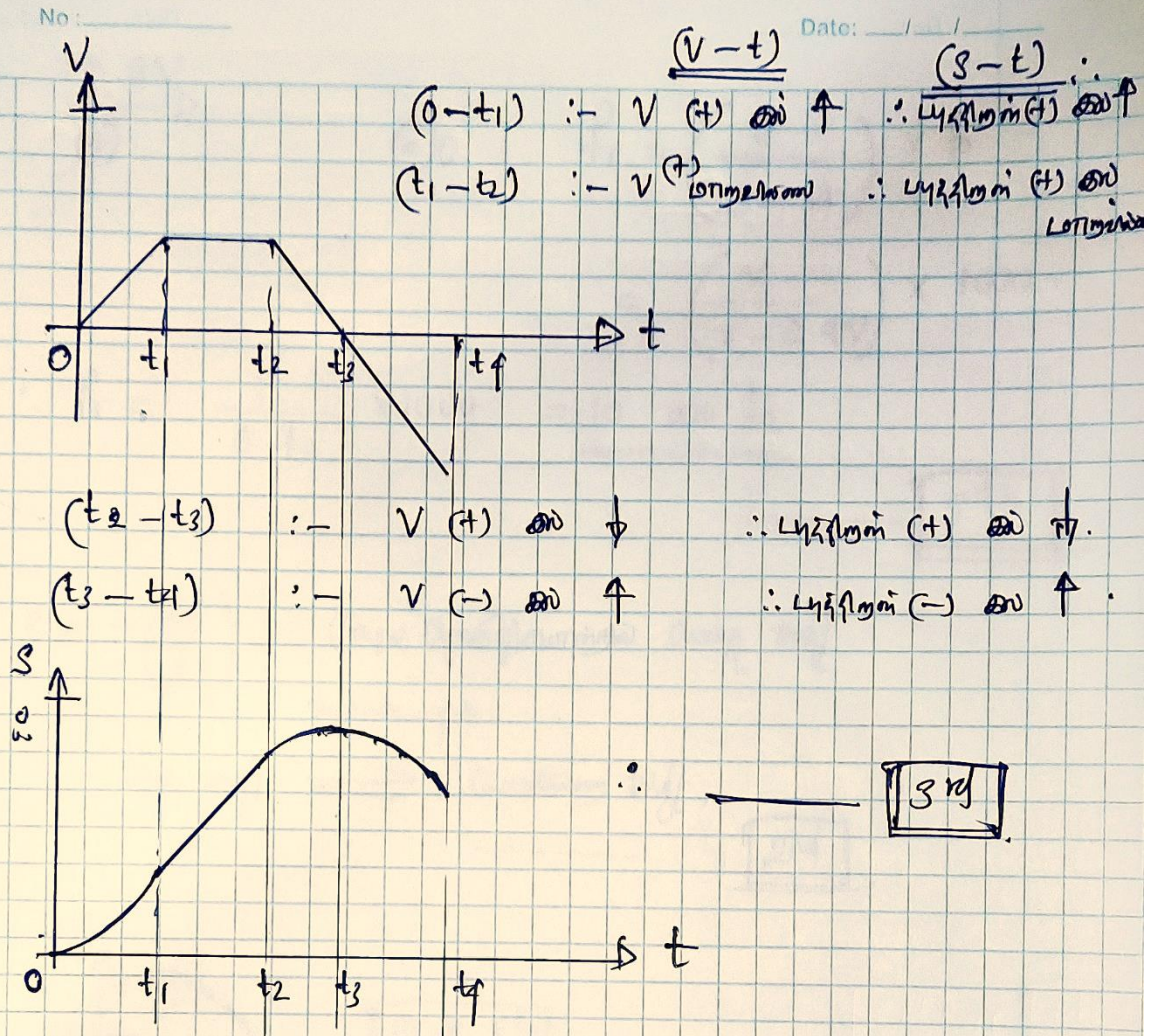 No :
Date: __/__/__
V
(V – t)
(S – t) ∴
(0 – t1) :- V (+) இல் ↑ ∴ படித்திறன் (+) இல் ↑
(t1 – t2) :- V (+) மாறவில்லை ∴ படித்திறன் (+) இல்
மாறவில்லை
t
0 t1 t2 t3 t4
(t2 – t3) :- V (+) இல் ↓ ∴ படித்திறன் (+) இல் ↓.
(t3 – t4) :- V (–) இல் ↑ ∴ படித்திறன் (–) இல் ↑ .
S
03
∴ 3rd
t
0 t1 t2 t3 t4